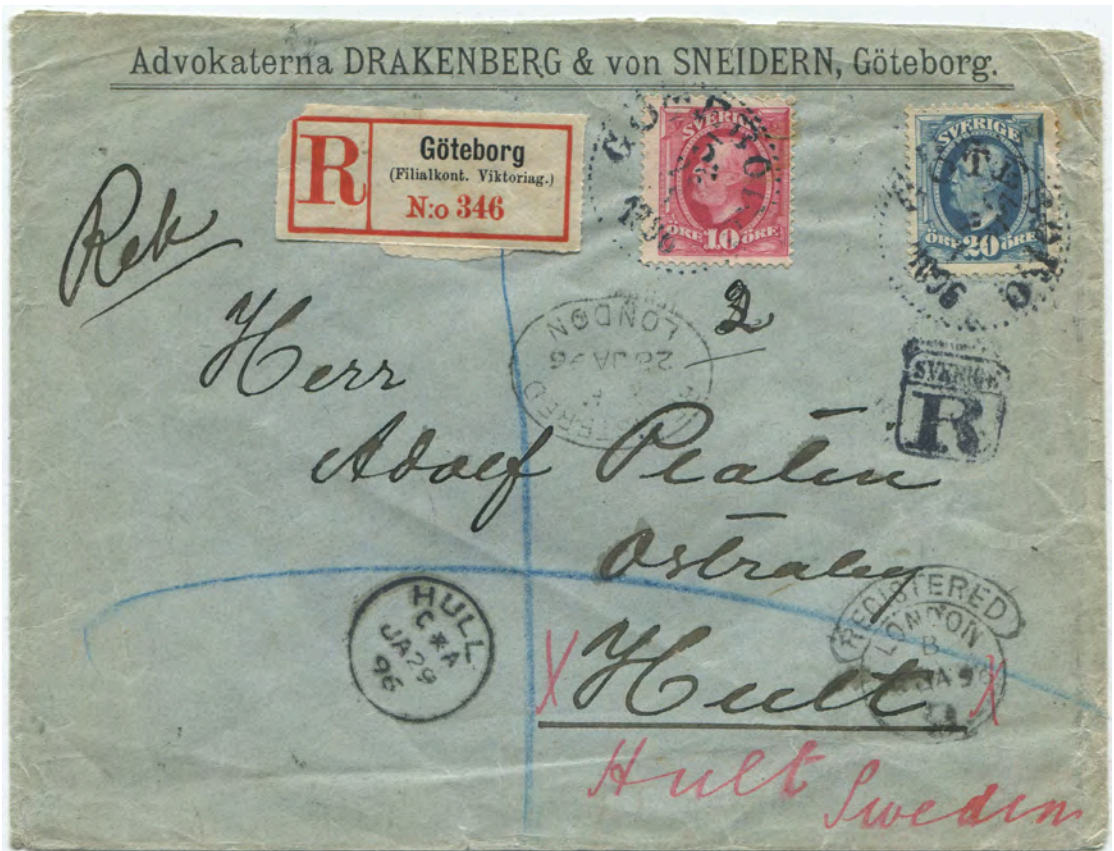 Advokaterna DRAKENBERG & von SNEIDERN, Göteborg.
R
Göteborg
(Filialkont. Viktoriag.)
N:o 346
SVERIGE
ÖRE 10 ÖRE
SVERIGE
ÖRE 20 ÖRE
Rek
2
LONDON
28 JA 96
SVERIGE
R
Herr
Adolf Platin
Ostraby
Hult
HULL
C * A
JA 29
96
REGISTERED
LONDON
B
JA 96
Hult
Sweden